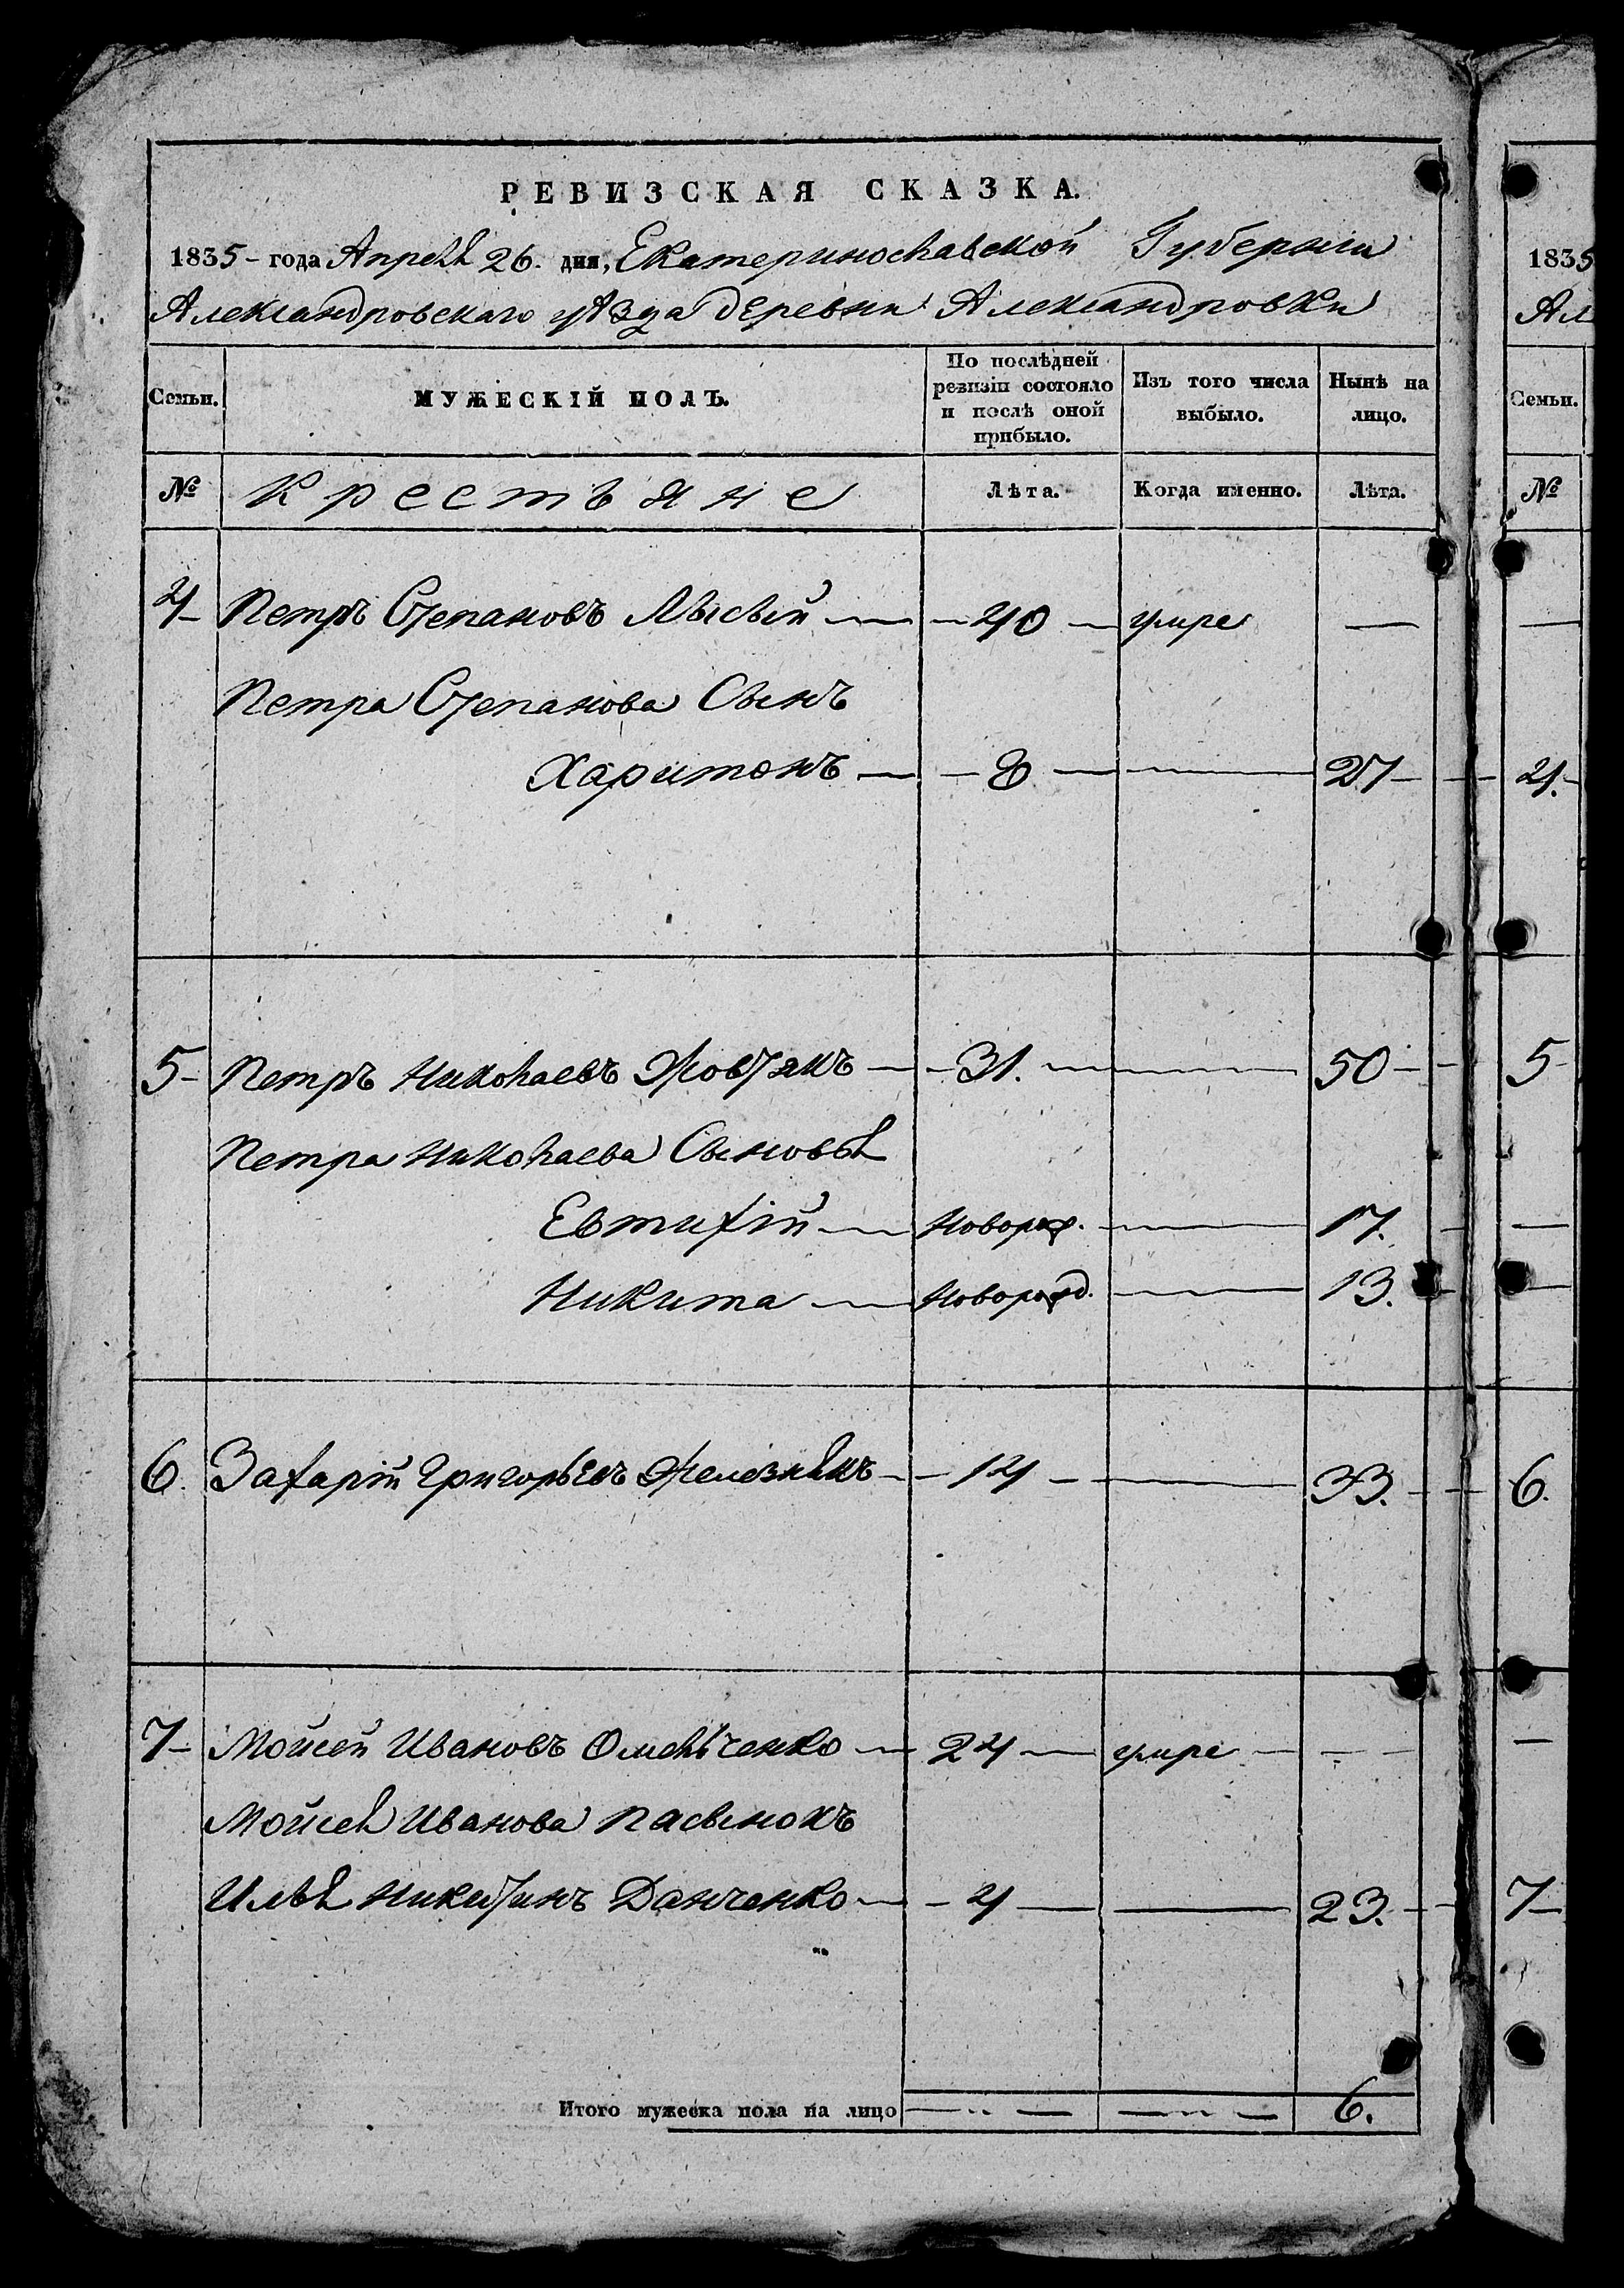 РЕВИЗСКАЯ СКАЗКА.
1835 - года Апреля 26. дня, Екатеринославской Губернии
Александровскаго уѣзда деревни Александровки
Семьи. МУЖЕСКІЙ ПОЛЪ. По послѣдней ревизіи состояло и послѣ оной прибыло. Изъ того числа выбыло. Нынѣ на лицо.
№ Крестьяне Лѣта. Когда именно. Лѣта.
4 - Петръ Степановъ Лысый — - 40 — умре —
Петра Степанова Сынъ
Харитонъ — - 8 — — 27 -
5 - Петръ Николаевъ Жовтякъ — - 31. — — 50 -
Петра Николаева Сыновья
Евтихій — новорож. — 17.
Никита — новорожд. — 13.
6. Захарій Григорьевъ Железнякъ - - 14 - — 33.
7 - Мойсей Ивановъ Омельченко — 24 — умре - - - -
Мойсея Иванова пасынокъ
Илья Никитинъ Данченко — - 4 — — 23.
Итого мужеска пола на лицо — „ — — „ — 6.
1835
Ал
Семьи.
№
—
4. -
5
—
—
6.
—
7 -